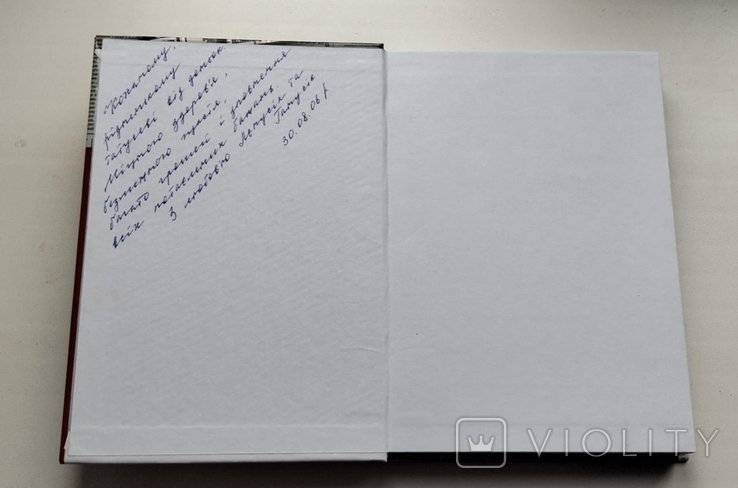 Коханому,
рідненькому
татусеві від доньок
Міцного здоров'я,
безмежного щастя,
багато грошей і здійснення
всіх потаємних бажань
З любов'ю Манусік та
Танусік
30.08.06 р
VIOLITY